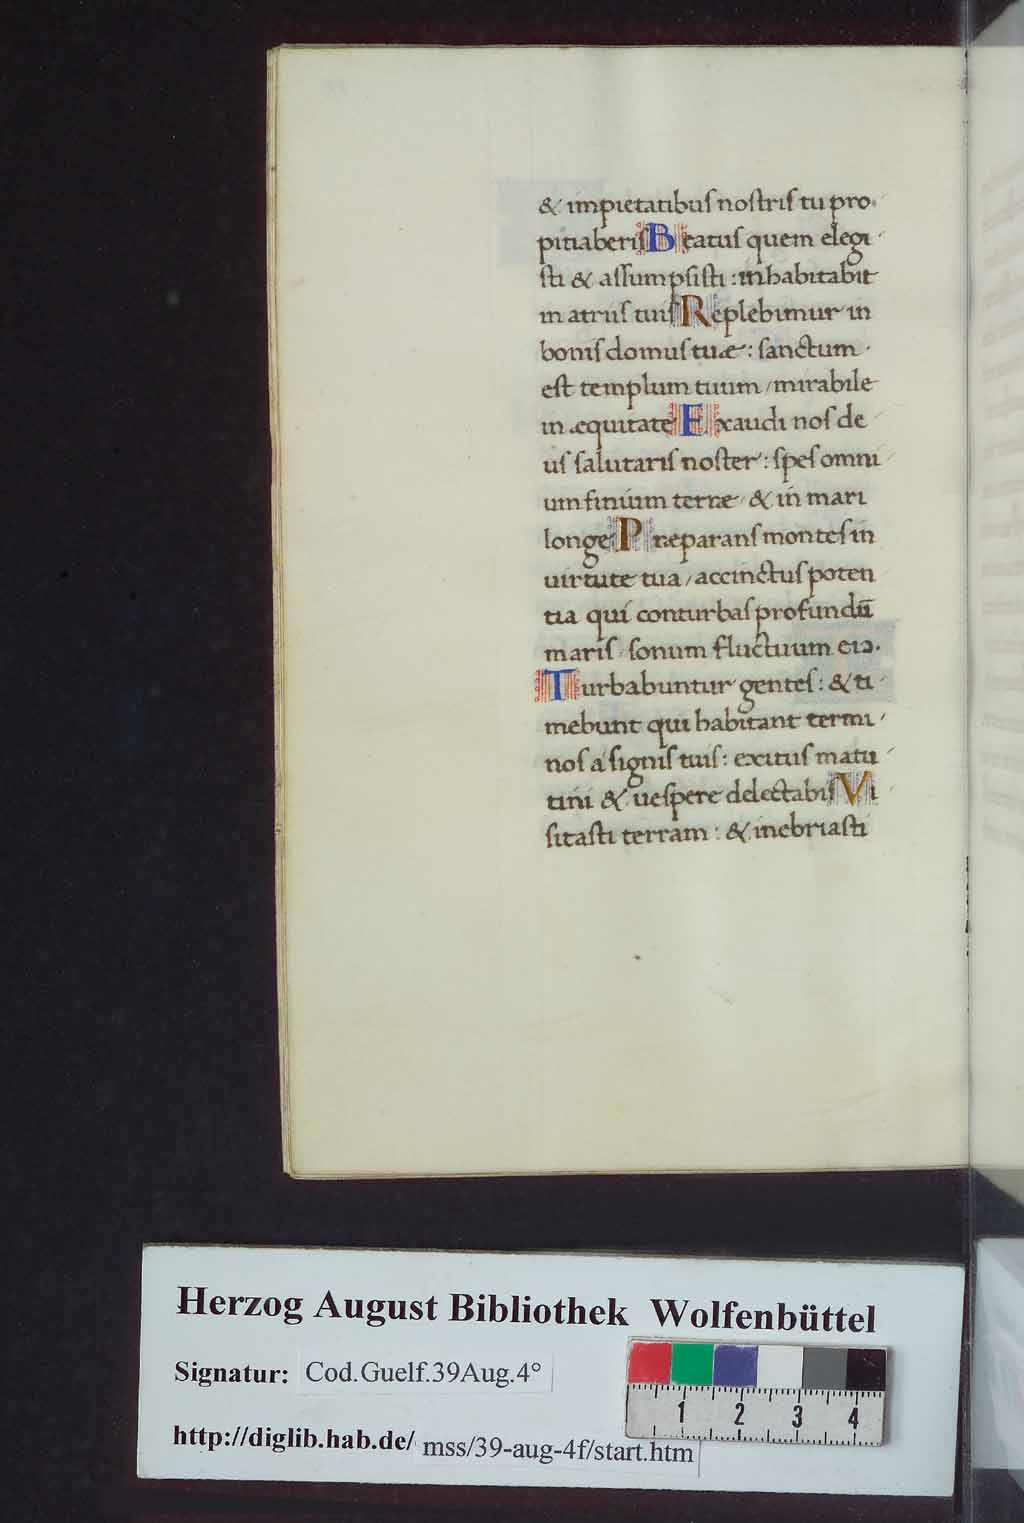 & impietatibus nostris tu pro
pitiaberis Beatus quem elegi
sti & assumpsisti : inhabitabit
in atriis tuis Replebimur in
bonis domus tuæ : sanctum
est templum tuum / mirabile
in æquitate Exaudi nos de
us salutaris noster : spes omni
um finium terræ & in mari
longe Præparans montes in
uirtute tua / accinctus poten
tia qui conturbas profundū
maris / sonum fluctuum eiꝰ.
Turbabuntur gentes : & ti
mebunt qui habitant termi
nos a signis tuis : exitus matu
tini & uespere delectabis Vi
sitasti terram : & inebriasti
Herzog August Bibliothek Wolfenbüttel
Signatur: Cod.Guelf.39Aug.4°
http://diglib.hab.de/ mss/39-aug-4f/start.htm
1 2 3 4